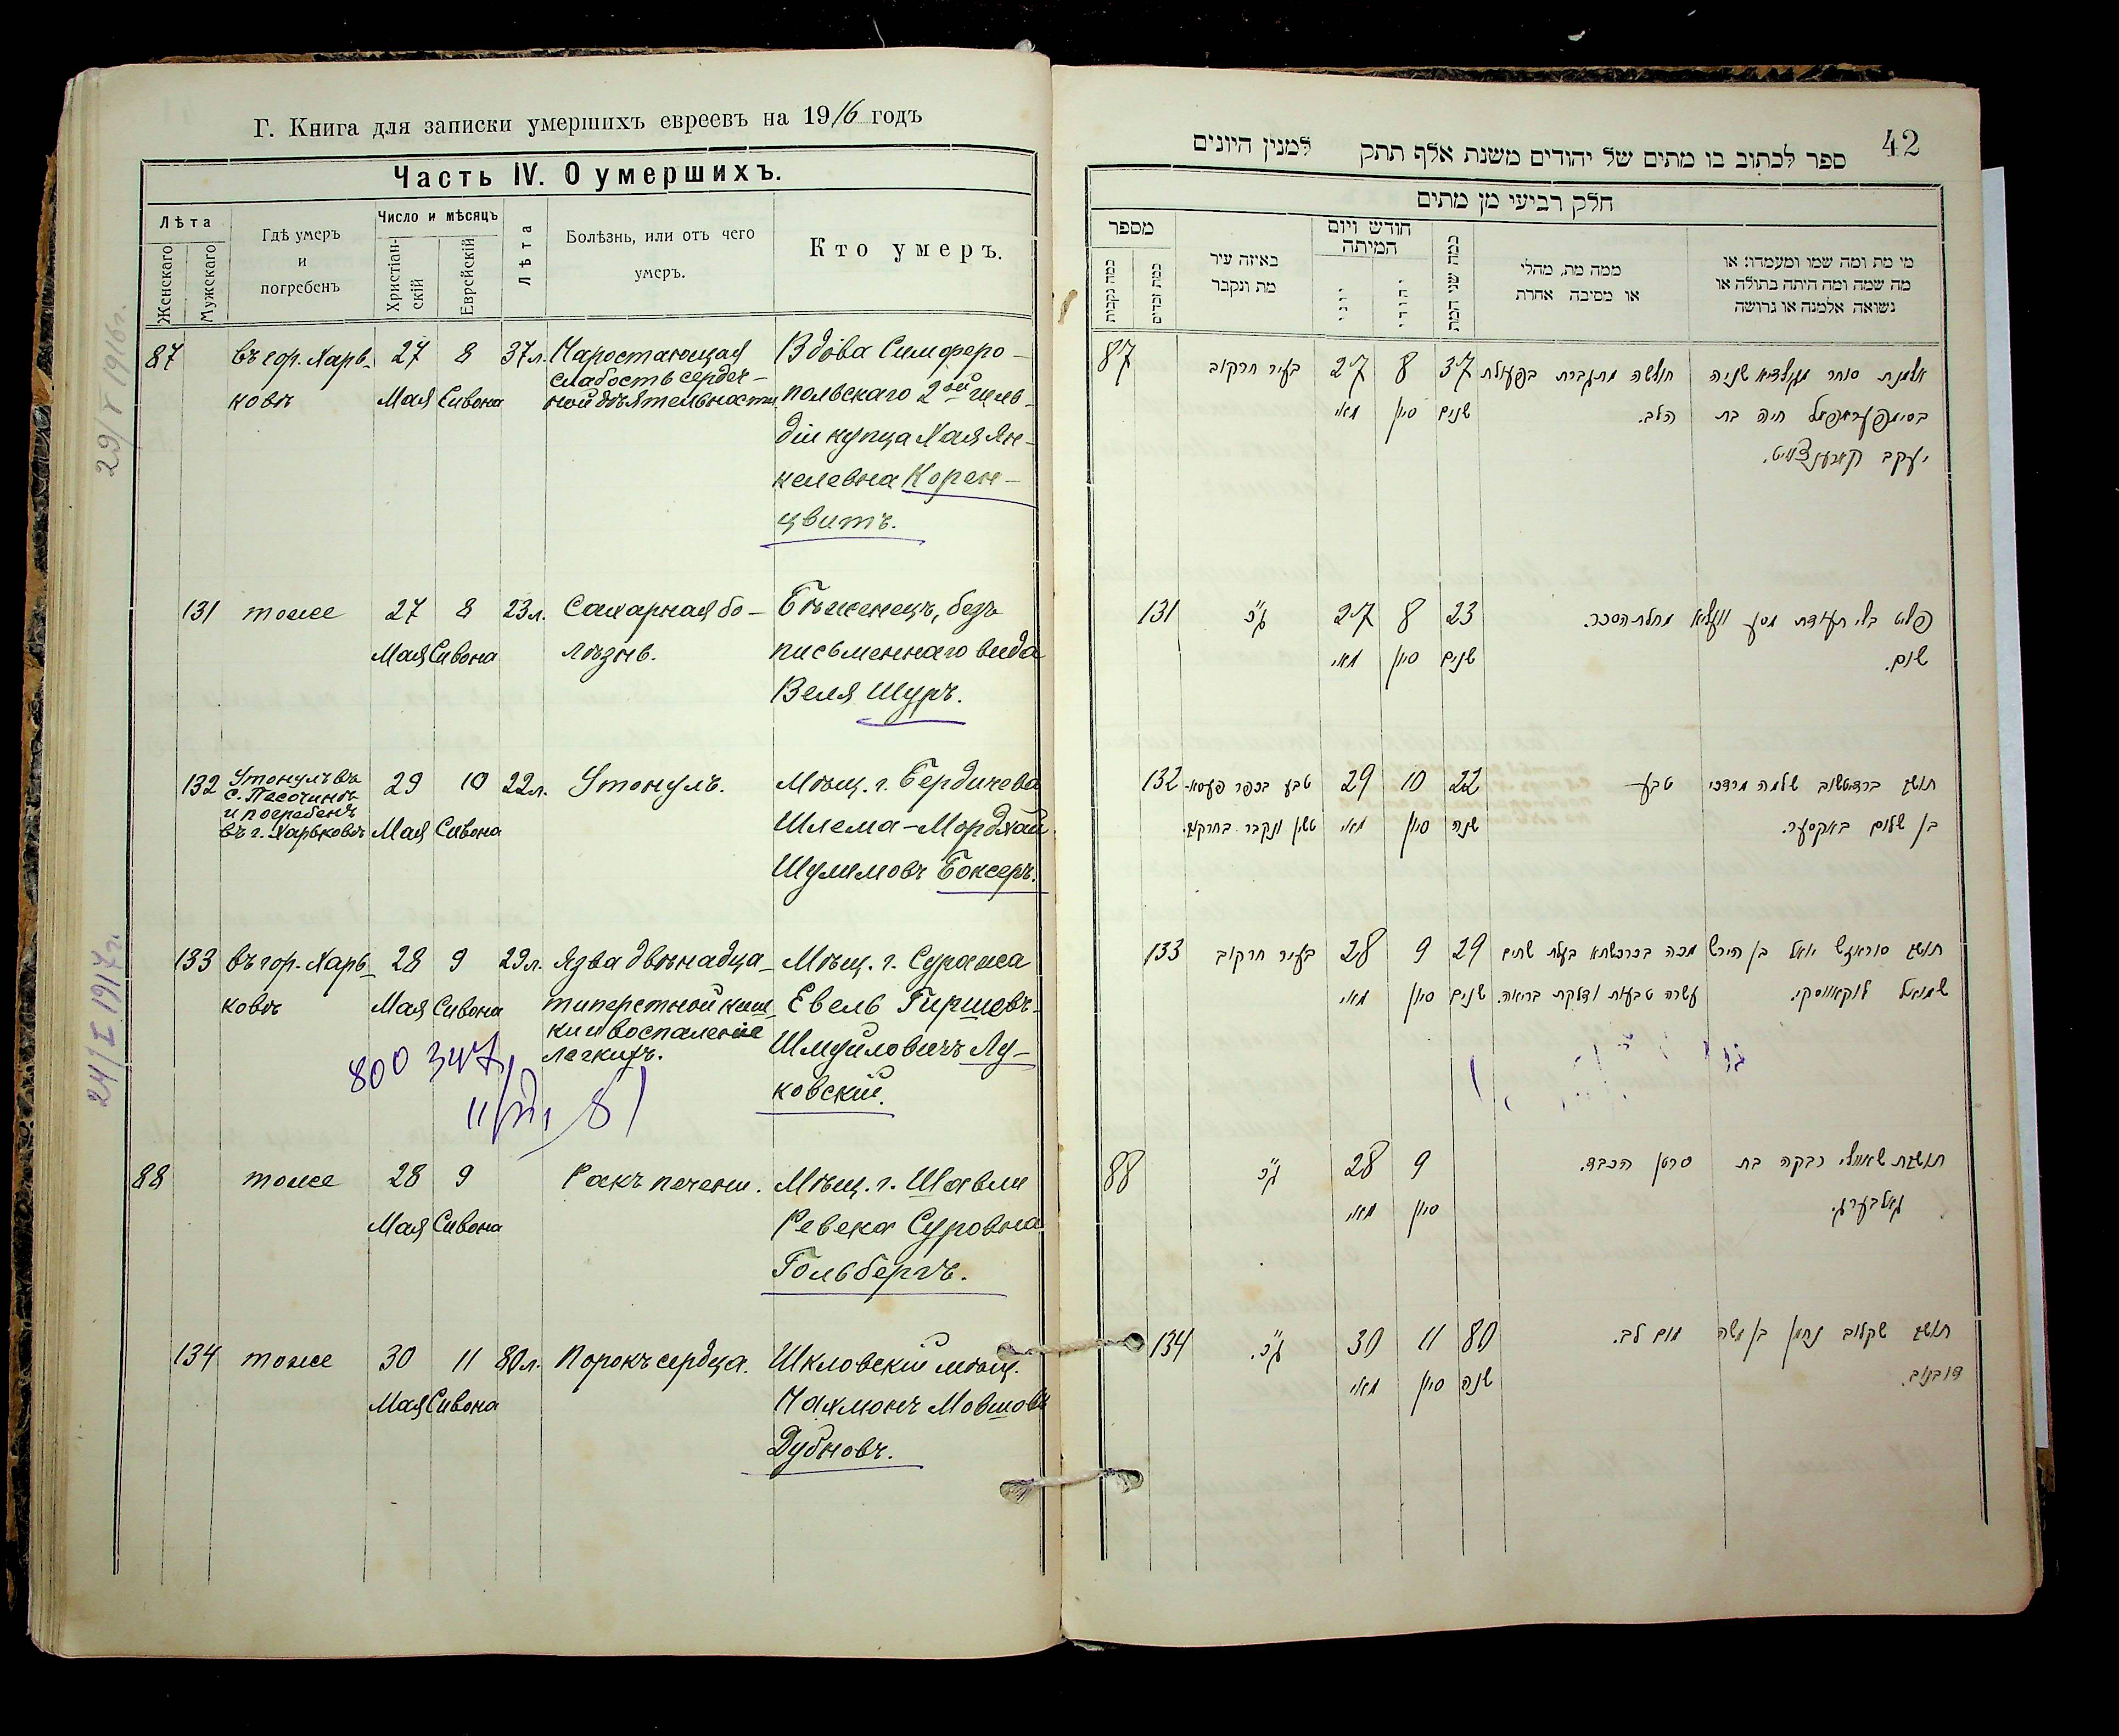 Г. Книга для записки умершихъ евреевъ на 1916 годъ
Часть IV. О умершихъ.
Лѣта
Женскаго
Мужескаго
Гдѣ умеръ
и
погребенъ
Число и мѣсяцъ
Христіан-
скій
Еврейскій
Лѣта
Болѣзнь, или отъ чего
умеръ.
Кто умеръ.
29/V 1916г.
87 въ гор. Харь- 27 8 37л. Наростающая Вдова Симферо-
слабость сердеч-
ковѣ Мая Сивона ной дѣятельности польскаго 2ой гиль-
діи купца Хая Ян-
келевна Корен-
цвитъ.
131 тоже 27 8 23л. Сахарная бо- Бѣженецъ, безъ
Мая Сивона лѣзнь. письменнаго вида
Веля Шуръ.
132 Утонулъ въ 29 10 22л. Утонулъ. Мѣщ. г. Бердичева
с. Песочинѣ
и погребенъ
въ г. Харьковѣ Мая Сивона Шлема-Мордхай
Шулимовъ Боксеръ.
24/I 1917г.
133 въ гор. Харь- 28 9 29л. Язва двѣнадца- Мѣщ. г. Суража
ковѣ Мая Сивона типерстной киш- Евель Гиршовъ-
ки и воспаленіе
легкихъ. Шмуйловичъ Лу-
ковскій.
800 347
88 тоже 28 9 Ракъ печени. Мѣщ. г. Шавли
Мая Сивона Ревека Суровна
Гольбергъ.
134 тоже 30 11 80л. Порокъ сердца. Шкловскій мѣщ.
Мая Сивона Нахмонъ Мовшовъ
Дубновъ.
42
ספר לכתוב בו מתים של יהודים משנת אלף תתק למנין היונים
חלק רביעי מן מתים
מספר
כמה נקבות
כמה זכרים
באיזה עיר
מת ונקבר
חודש ויום
המיתה
יוני
יהודי
כמה שני המת
ממה מת, מהלי
או מסיבה אחרת
מי מת ומה שמו ומעמדו: או
מה שמה ומה היתה בתולה או
נשואה אלמנה או גרושה
87 בעיר חרקוב 27 8 37 חולשה מתגברת בפעולת אלמנת סוחר מגילדיא שניה
מאי סיון שנים הלב. בסימפעראפאל חיה בת
יעקב קארענצווייט.
131 ג"כ 27 8 23 מחלת הסכר. פליט בלי תעודת מסע וועליא
מאי סיון שנים שור.
132 טבע בכפר פעסא- 29 10 22 טבע תושב ברדיטשוב שלמה מרדכי
טשין ונקבר בחרקוב. מאי סיון שנה בן שלום באקסער.
133 בעיר חרקוב 28 9 29 מכה בכרכשתא בעלת שתים תושב סוראזש יואל בן הירש
מאי סיון שנים עשרה טבעות ודלקת בריאה. שמואל לוקאווסקי.
88 ג"כ 28 9 סרטן הכבד. תושבת שאוולי רבקה בת
מאי סיון גאלבערג.
134 ג"כ. 30 11 80 מום לב. תושב שקלוב נחמן בן משה
מאי סיון שנה דובנוב.